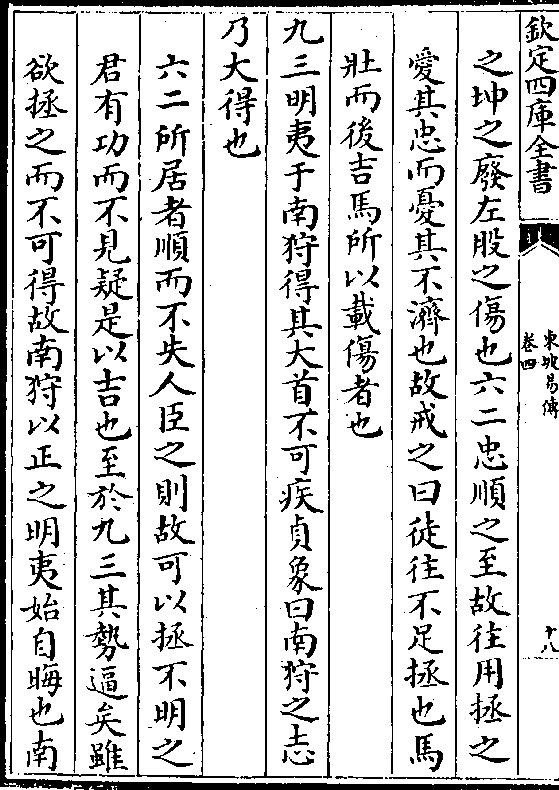 欽定四庫全書
東坡易傳
卷四
十八
之坤之廢左股之傷也六二忠順之至故往用拯之
愛其忠而憂其不濟也故戒之曰徒往不足拯也馬
壯而後吉馬所以載傷者也
九三明夷于南狩得其大首不可疾貞象曰南狩之志
乃大得也
六二所居者順而不失人臣之則故可以拯不明之
君有功而不見疑是以吉也至於九三其勢逼矣雖
欲拯之而不可得故南狩以正之明夷始自晦也南